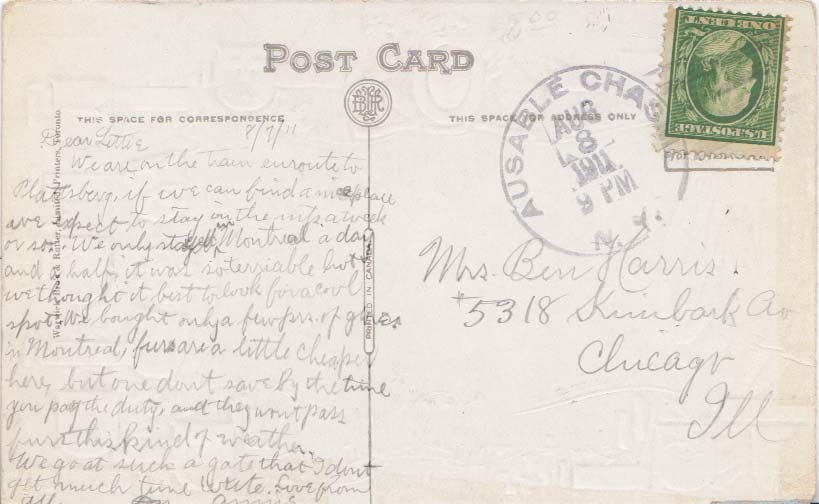 POST CARD
THIS SPACE FOR CORRESPONDENCE
BRT
THIS SPACE FOR ADDRESS ONLY
8/7/11
Dear Lettie
We are on the train enroute to
Plattsberg, if we can find a nice place
we expect to stay in the mts a week
or so. We only stayed in Montreal a day
and a half, it was so terriable hot
we thought it best to look for a cool
spot. We bought only a few prs. of gloves
in Montreal, furs are a little cheaper
here, but one dont save by the time
you pay the duty, and they wont pass
furs this kind of weather.
We go at such a gate that I dont
get much time write. Love from
All
Annie
Warwick Bro's & Rutter, Limited, Printers, Toronto
PRINTED IN CANADA
AUSABLE CHAS
AUG
8
1911
9 PM
N.Y.
U.S. POSTAGE
ONE CENT
Mrs. Ben Harris.
#5318 Kimbark Av
Chicago
Ill